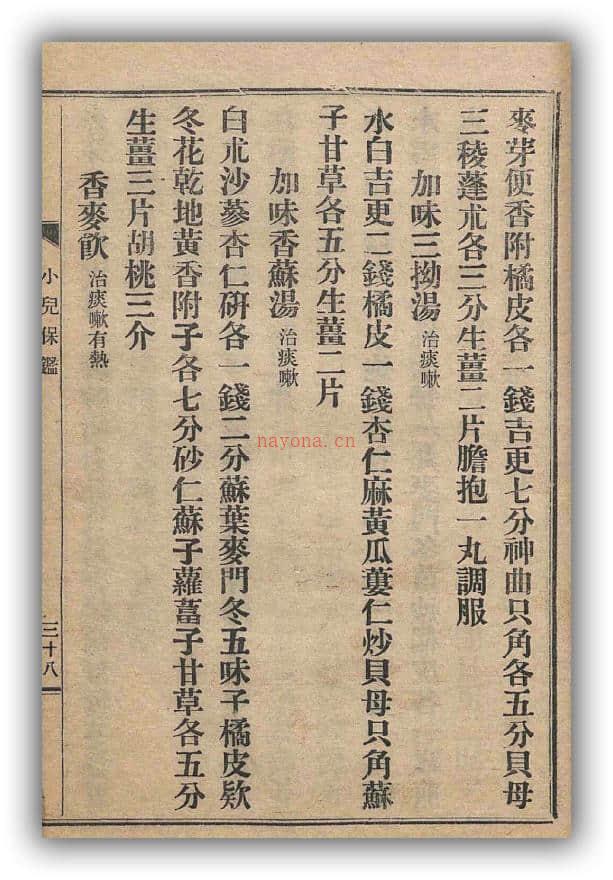 麥芽便香附橘皮各一錢吉更七分神曲只角各五分貝母
三稜蓬朮各三分生薑二片膽抱一丸調服
加味三拗湯 治痰嗽
水白吉更二錢橘皮一錢杏仁麻黃瓜蔞仁炒貝母只角蘇
子甘草各五分生薑二片
加味香蘇湯 治痰嗽
白朮沙蔘杏仁硏各一錢二分蘇葉麥門冬五味子橘皮欵
冬花乾地黃香附子各七分砂仁蘇子蘿葍子甘草各五分
生薑三片胡桃三介
香麥飮 治痰嗽有熱
小兒保鑑
三十八
nayona.cn